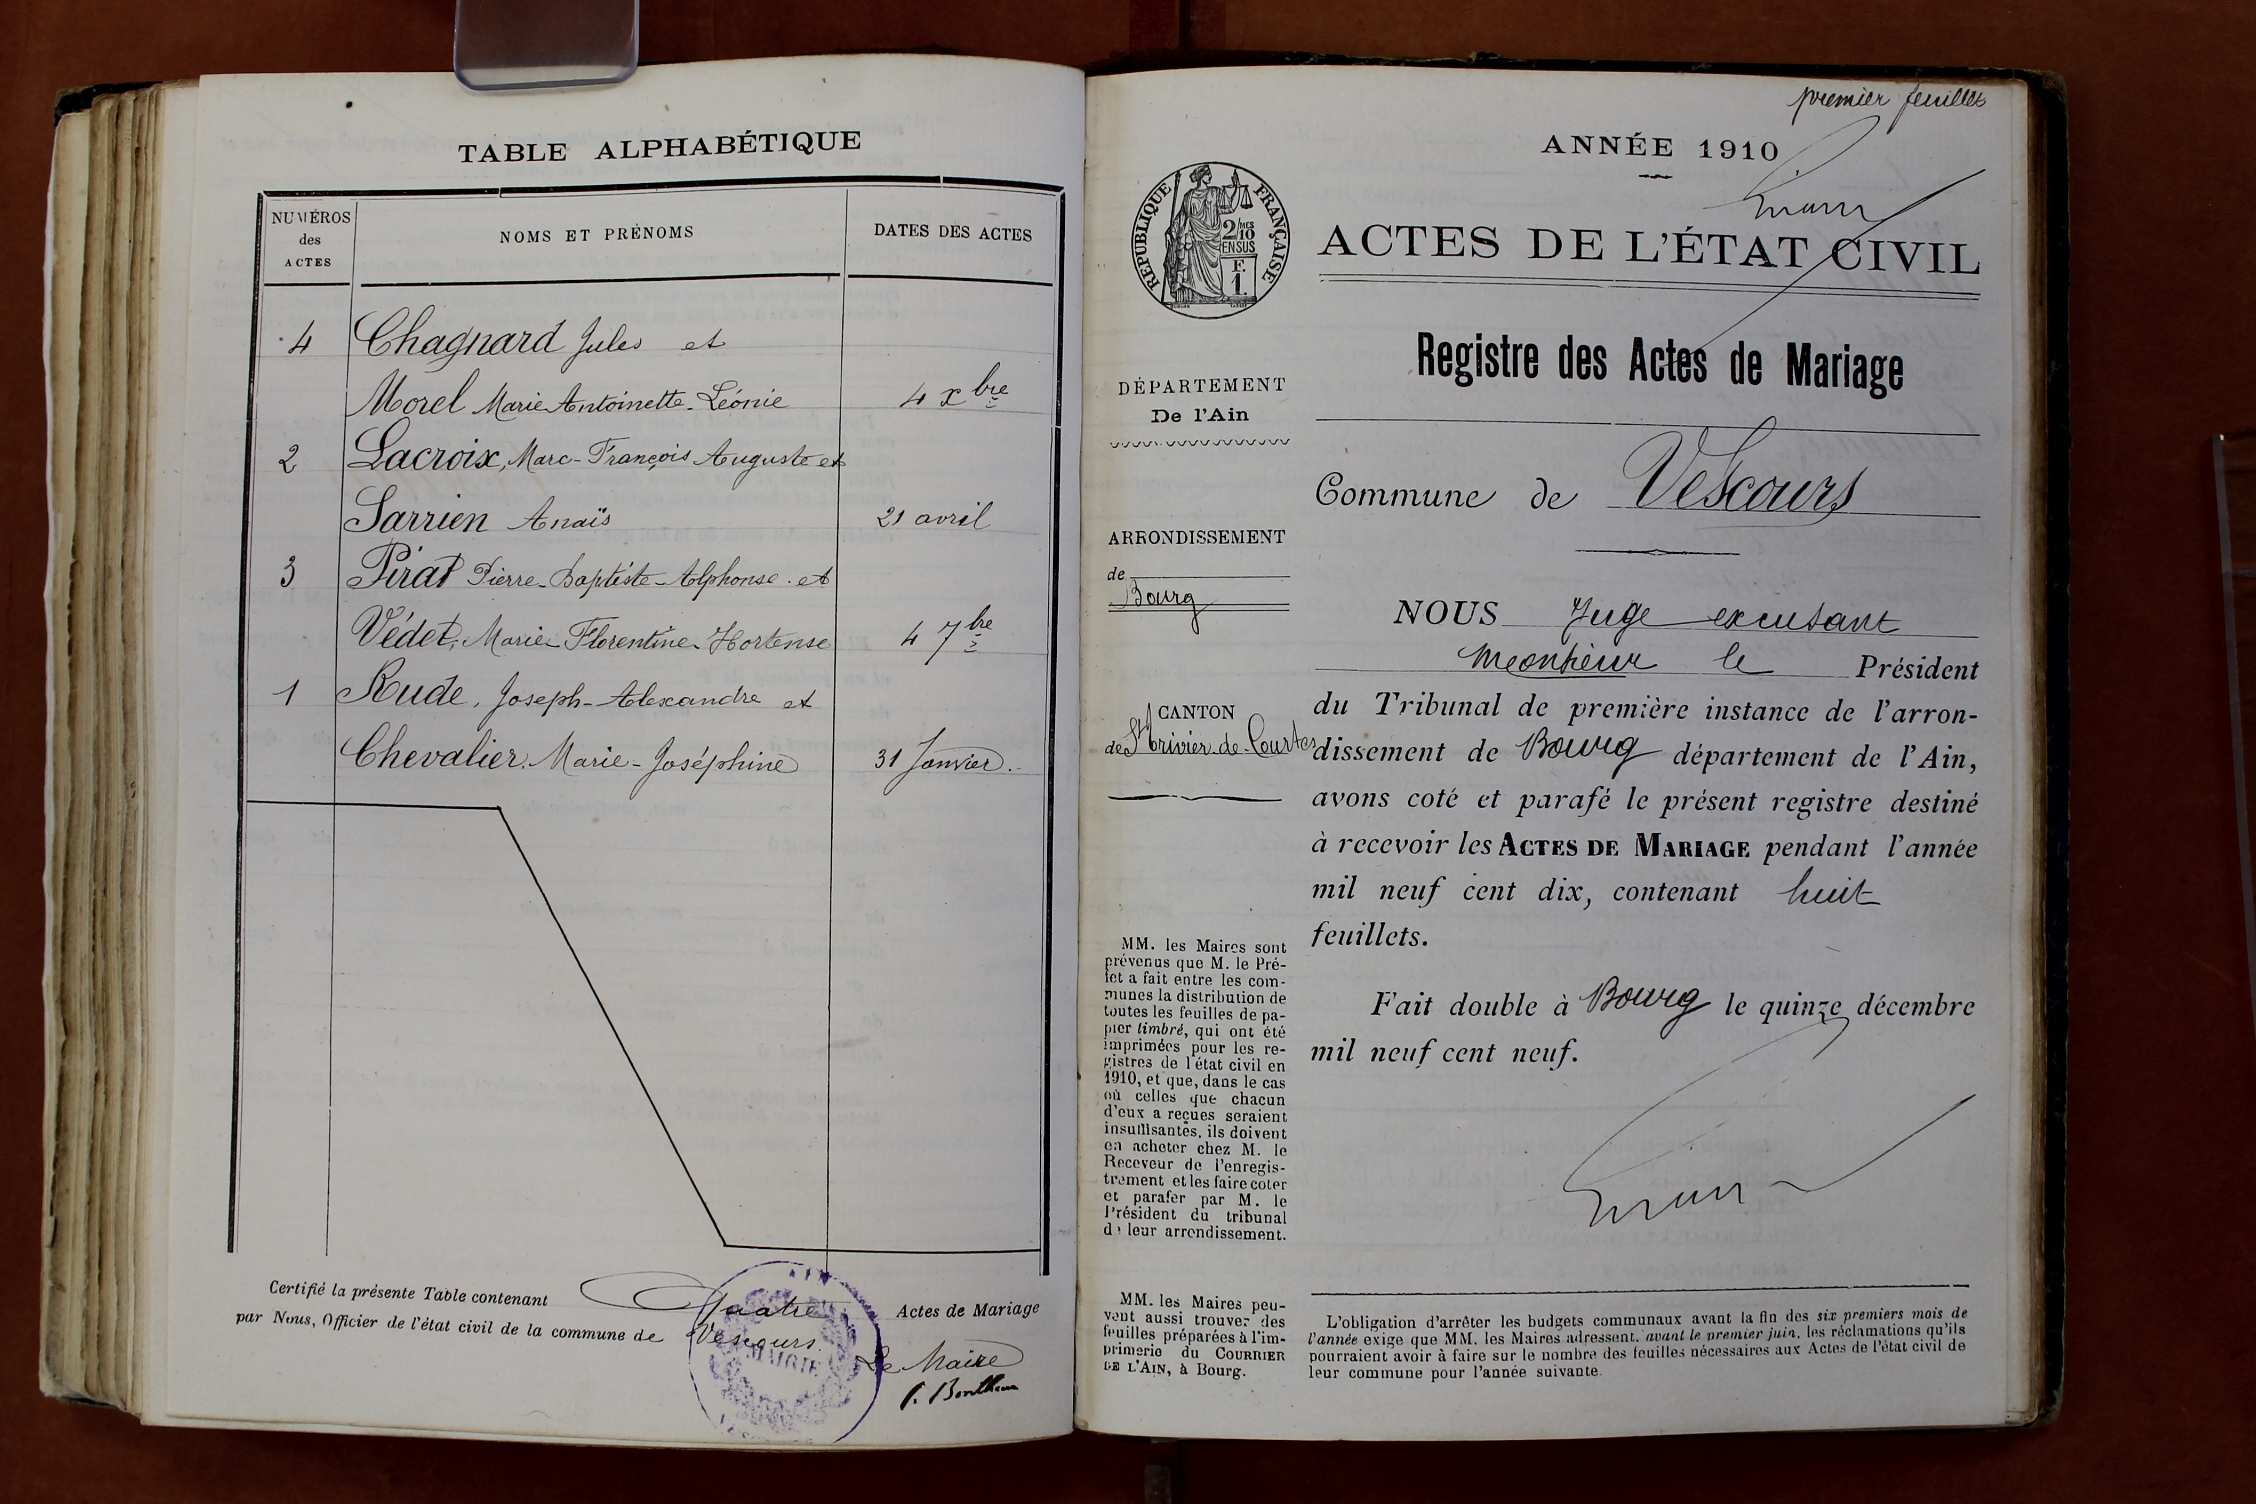 TABLE ALPHABÉTIQUE
NUMÉROS
des
ACTES
NOMS ET PRÉNOMS
DATES DES ACTES
4 Chagnard Jules et
Morel Marie Antoinette-Léonie 4 xbre
2 Lacroix, Marc-François Auguste et
Sarrien Anaïs 21 avril
3 Pirat Pierre-Baptiste-Alphonse et
Védet, Marie Florentine-Hortense 4 7bre
1 Rude, Joseph-Alexandre et
Chevalier Marie-Joséphine 31 Janvier.
Certifié la présente Table contenant Quatre Actes de Mariage
par Nous, Officier de l'état civil de la commune de Vescours.
Le Maire
AIN
MAIRIE
premier feuillet
ANNÉE 1910
RÉPUBLIQUE FRANÇAISE
2/10 MES
EN SUS
F.
1.
ACTES DE L'ÉTAT CIVIL
Registre des Actes de Mariage
DÉPARTEMENT
De l'Ain
Commune de Vescours
ARRONDISSEMENT
de
Bourg
CANTON
de St Trivier-de-Courtes
MM. les Maires sont
prévenus que M. le Pré-
fet a fait entre les com-
munes la distribution de
toutes les feuilles de pa-
pier timbré, qui ont été
imprimées pour les re-
gistres de l'état civil en
1910, et que, dans le cas
où celles que chacun
d'eux a reçues seraient
insuffisantes, ils doivent
en acheter chez M. le
Receveur de l'enregis-
trement et les faire coter
et parafer par M. le
Président du tribunal
de leur arrondissement.
MM. les Maires peu-
vent aussi trouver des
feuilles préparées à l'im-
primerie du COURRIER
DE L'AIN, à Bourg.
NOUS Juge excusant
Monsieur le Président
du Tribunal de première instance de l'arron-
dissement de Bourg département de l'Ain,
avons coté et parafé le présent registre destiné
à recevoir les ACTES DE MARIAGE pendant l'année
mil neuf cent dix, contenant huit
feuillets.
Fait double à Bourg le quinze décembre
mil neuf cent neuf.
L'obligation d'arrêter les budgets communaux avant la fin des six premiers mois de
l'année exige que MM. les Maires adressent, avant le premier juin, les réclamations qu'ils
pourraient avoir à faire sur le nombre des feuilles nécessaires aux Actes de l'état civil de
leur commune pour l'année suivante.